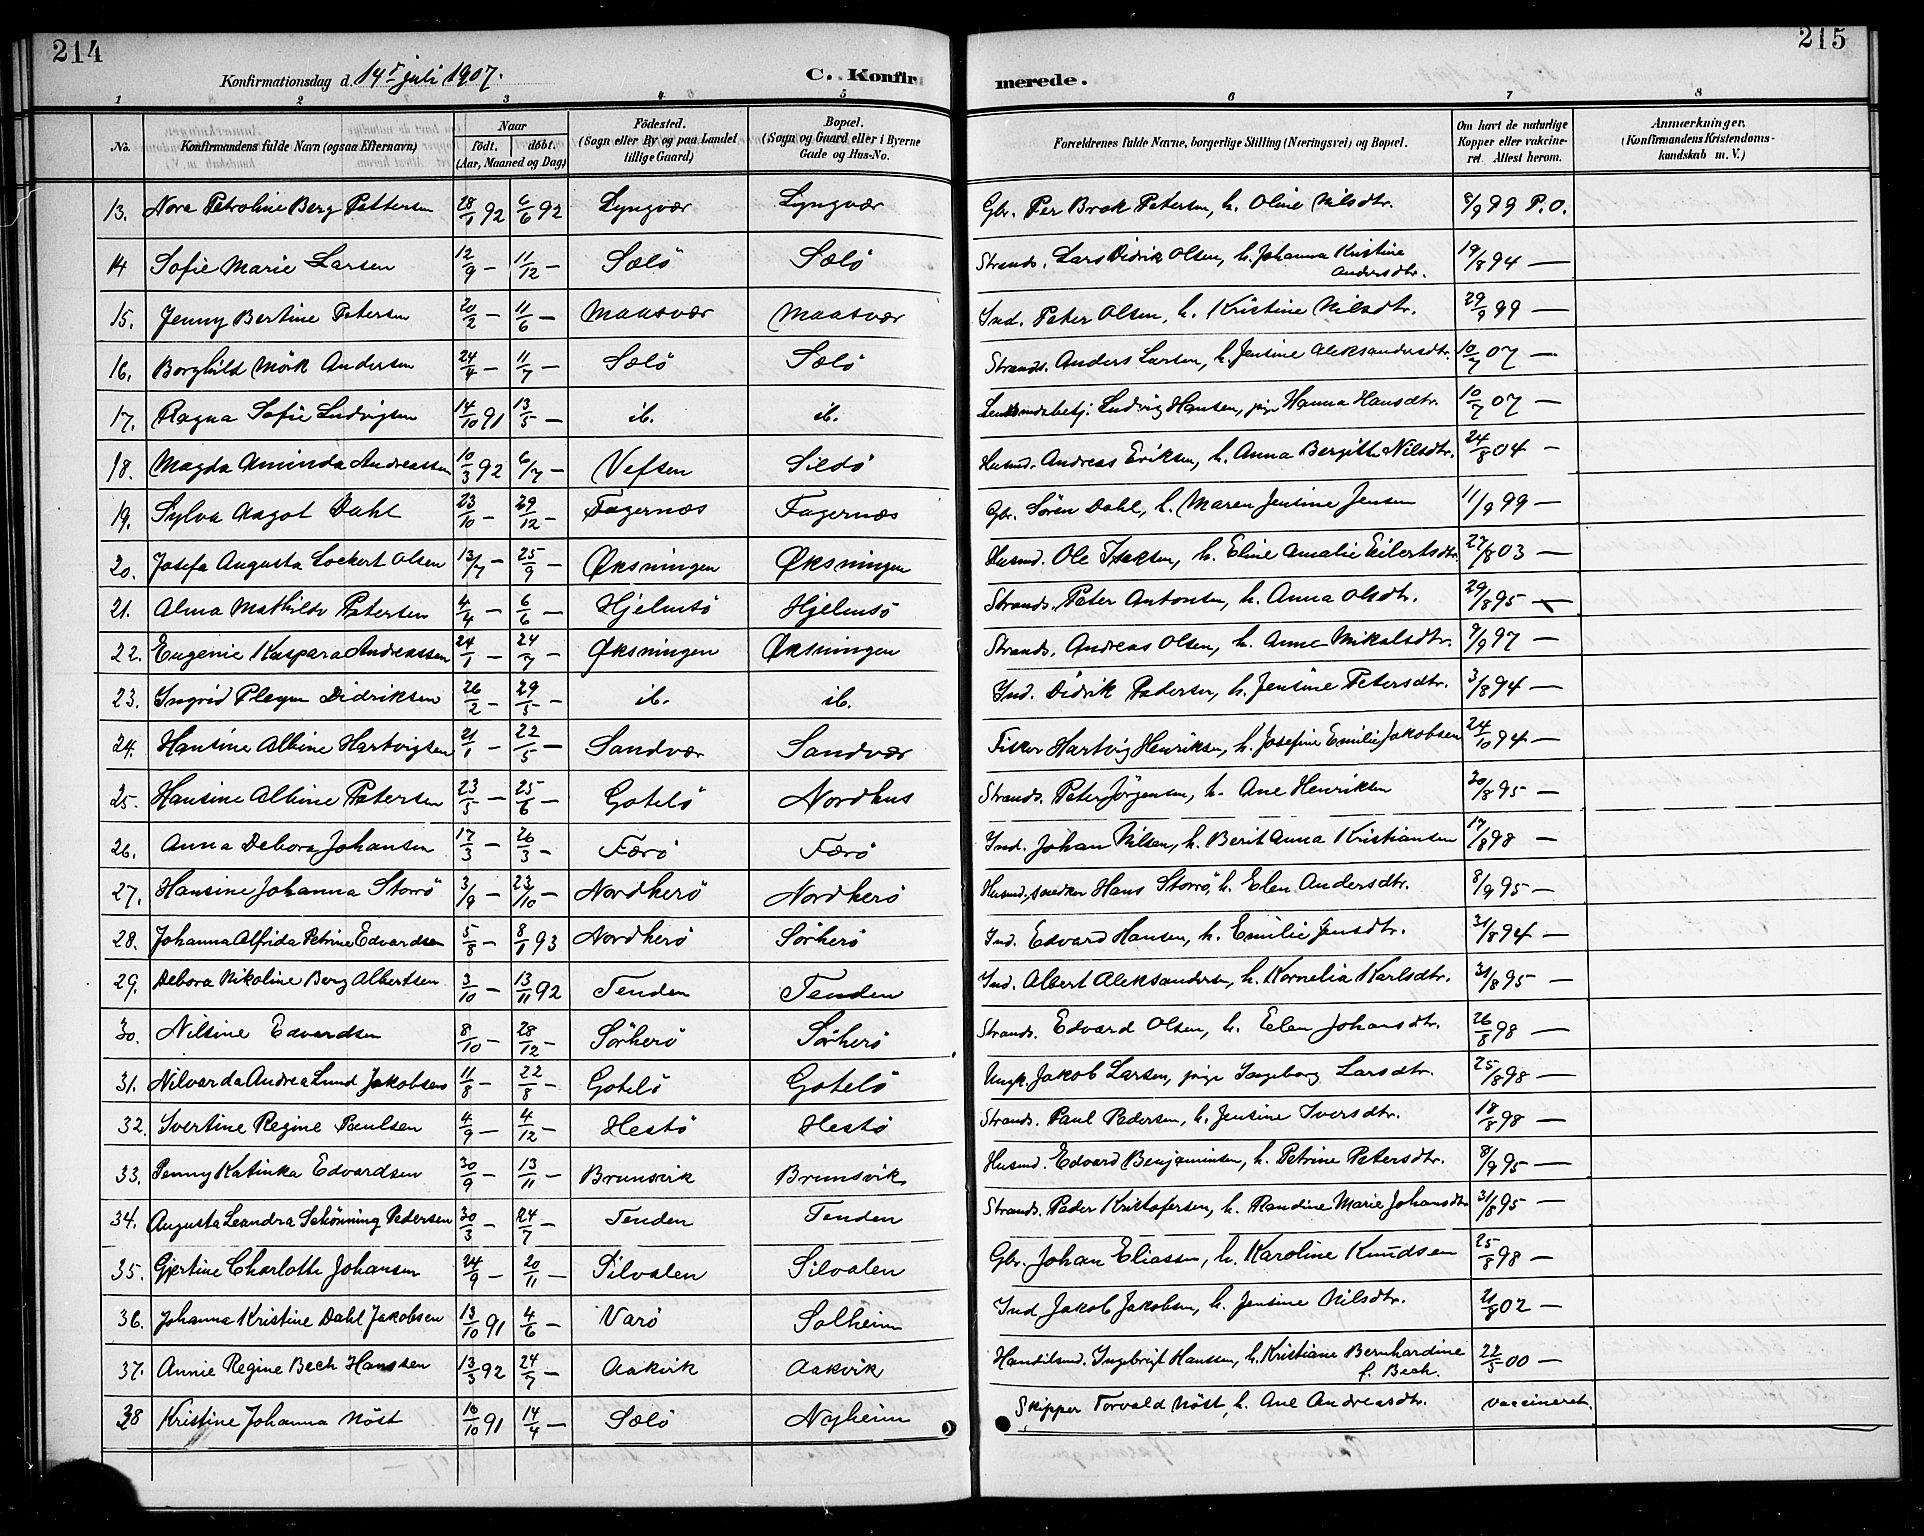 214
215
Konfirmationsdag d. 14de juli 1907.
C. Konfirmerede.
1 2 3 4 5 6 7 8
No. Konfirmandens fulde Navn (ogsaa Efternavn) Naar født. døbt. (Aar, Maaned og Dag) Födested. (Sogn eller By og paa Landet tillige Gaard) Bopæl. (Sogn og Gaard eller i Byerne Gade og Hus-No. Forældrenes fulde Navne, borgerlige Stilling (Næringsvei) og Bopæl. Om havt de naturlige Kopper eller vakcineret. Attest herom. Anmærkninger. (Konfirmandens Kristendomskundskab m. V.)
13. Nora Petroline Berg Pettersen 28/1 92 6/6 92 Lyngvær Lyngvær Gbr. Per Brok Petersen, h. Oline Nilsdtr. 8/9 99 P.O.
14 Sofie Marie Larsen 12/9 — 11/12 — Sælö Sælö Strands. Lars Didrik Olsen, h. Johanna Kristine Andersdtr. 19/8 94 —
15. Jenny Bertine Petersen 20/2 — 11/6 — Maasvær Maasvær Ind. Peter Olsen, h. Kristine Nilsdtr. 29/9 99 —
16. Borghild Mörk Andersen 24/4 — 11/7 — Sælö Sælö Strands. Anders Larsen, h. Jensine Aleksandersdtr. 10/7 07 —
17. Ragna Sofie Ludvigsen 14/10 91 13/5 — ib. ib. Ludvig Hansen, pige Hanna Hansdtr. 10/7 07 —
18. Magda Aminda Andreassen 10/3 92 6/7 — Vefsen Sildö Husmd. Andreas Eriksen, h. Anna Bergitte Nilsdtr. 24/8 04 —
19. Sylva Aagot Dahl 23/10 — 29/12 — Fagernæs Fagernæs Gbr. Sören Dahl, h. Maren Jensine Jensen 11/9 99 —
20. Josefa Augusta Lockert Olsen 13/7 — 25/9 — Øksningen Øksningen Husmd. Ole Isaksen, h. Eline Amalie Eilertsdtr. 27/8 03 —
21. Alma Mathilde Petersen 4/4 — 6/6 — Hjelmsö Hjelmsö Strands. Peter Antonsen, h. Anna Olsdtr. 29/8 95 —
22. Eugenie Kaspara Andreassen 24/1 — 24/7 — Øksningen Øksningen Strands. Andreas Olsen, h. Anne Mikalsdtr. 9/9 97 —
23. Ingrid Pleym Didriksen 26/2 — 29/5 — ib. ib. Ind. Didrik Pedersen, h. Jensine Petersdtr. 3/8 94 —
24. Hansine Albine Hartvigsen 21/1 — 22/5 — Sandvær Sandvær Fisker Hartvig Henriksen, h. Josefine Emilie Jakobsen 24/10 94 —
25. Hansine Albine Petersen 23/5 — 25/6 — Gotelö Nordhus Strands. Peter Jörgensen, h. Ane Henriksen 30/8 95 —
26. Anna Debora Johansen 17/3 — 26/3 — Færö Færö Ind. Johan Nilsen, h. Berit Anna Kristiansen 17/8 98 —
27. Hansine Johanna Storrö 3/9 — 23/10 — Nordherö Nordherö Husmd, snedker Hans Storrö, h. Elen Andersdtr. 8/9 95 —
28. Johanna Alfrida Petrine Edvardsen 5/8 — 8/1 93 Nordherö Sørherö Ind. Edvard Hansen, h. Emilie Jensdtr. 31/8 94 —
29. Debora Nikoline Berg Albertsen 3/10 — 13/11 92 Tenden Tenden Ind. Albert Aleksandersen, h. Kornelia Karlsdtr. 31/8 95 —
30. Nilsine Edvardsen 8/10 — 28/12 — Sörherö Sörherö Strands. Edvard Olsen, h. Elen Johansdtr. 26/8 98 —
31. Nilvarda Andrea Lund Jakobsen 11/8 — 22/8 — Gotelö Gotelö Ungk. Jakob Larsen, pige Ingeborg Larsdtr. 25/8 98 —
32. Ivertine Regine Paulsen 4/9 — 4/12 — Hestö Hestö Strands. Paul Pedersen, h. Jensine Iversdtr. 18/8 98 —
33. Penny Katinka Edvardsen 30/9 — 13/11 — Brunsvik Brunsvik Husmd. Edvard Benjaminsen, h. Petrine Petersdtr. 8/9 95 —
34. Augusta Leandra Schönning Pedersen 30/3 — 24/7 — Tenden Tenden Strands. Peder Kristofersen, h. Randine Marie Johansdtr 31/8 95 —
35. Gjertine Charlotte Johansen 24/9 — 20/11 — Silvalen Silvalen Gbr. Johan Eliassen, h. Karoline Knudsen 25/8 98 —
36. Johanna Kristine Dahl Jakobsen 13/10 91 4/6 — Varö Solheim Ind Jakob Jakobsen, h. Jensine Nilsdtr. 21/8 02 —
37. Annie Regine Bech Hanssen 13/3 92 24/7 — Aakvik Aakvik Handelsmd. Ingbrigt Hanssen, h. Kristiane Bernhardine f. Bech. 22/5 00 —
38 Kristine Johanna Nöst 10/10 91 14/4 — Sælö Nyheim Skipper Torvald Nöst, h. Ane Andreasdtr. vaccineret.